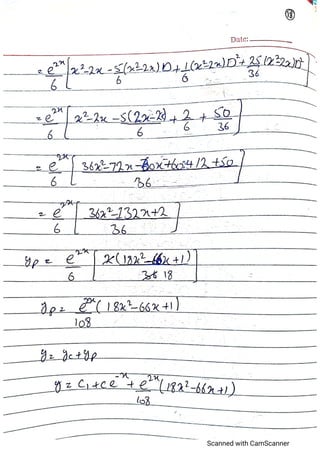 18
Date:
= e^2x/6 [x²-2x - 5/6 (x²-2x) D + 1/6 (x²-2x) D² + 25/36 (x²-2x) D²]
= e^2x/6 [x²-2x - 5(2x-2)/6 + 2/6 + 50/36]
= e^2x/6 [36x²-72x-60x+60+12+50 / 36]
= e^2x/6 [36x²-132x+2 / 36]
yp = e^2x/6 [2(18x²-66x+1) / 36 18]
yp = e^2x/108 (18x²-66x+1)
y = yc + yp
y = c₁ + ce^-x + e^2x/108 (18x²-66x+1)
Scanned with CamScanner